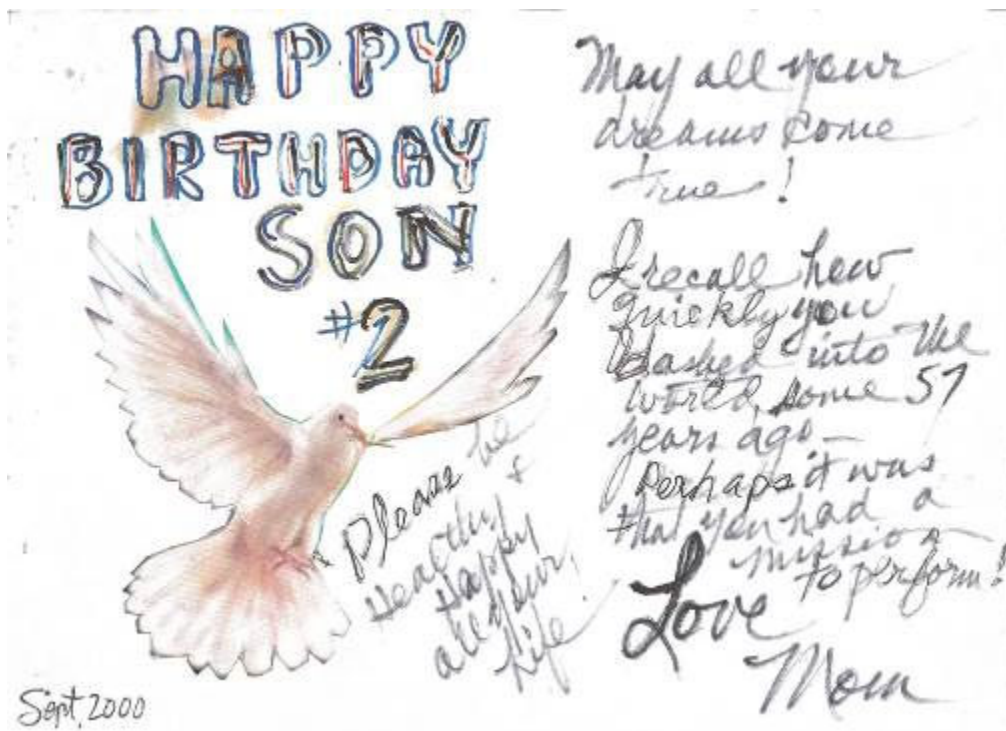 HAPPY
BIRTHDAY
SON
#2
Please be
Healthy &
Happy
all your
Life
Sept, 2000
May all your
dreams come
true!
I recall how
quickly you
dashed into the
world, some 57
years ago—
Perhaps it was
that you had a
mission
to perform!
Love
Mom